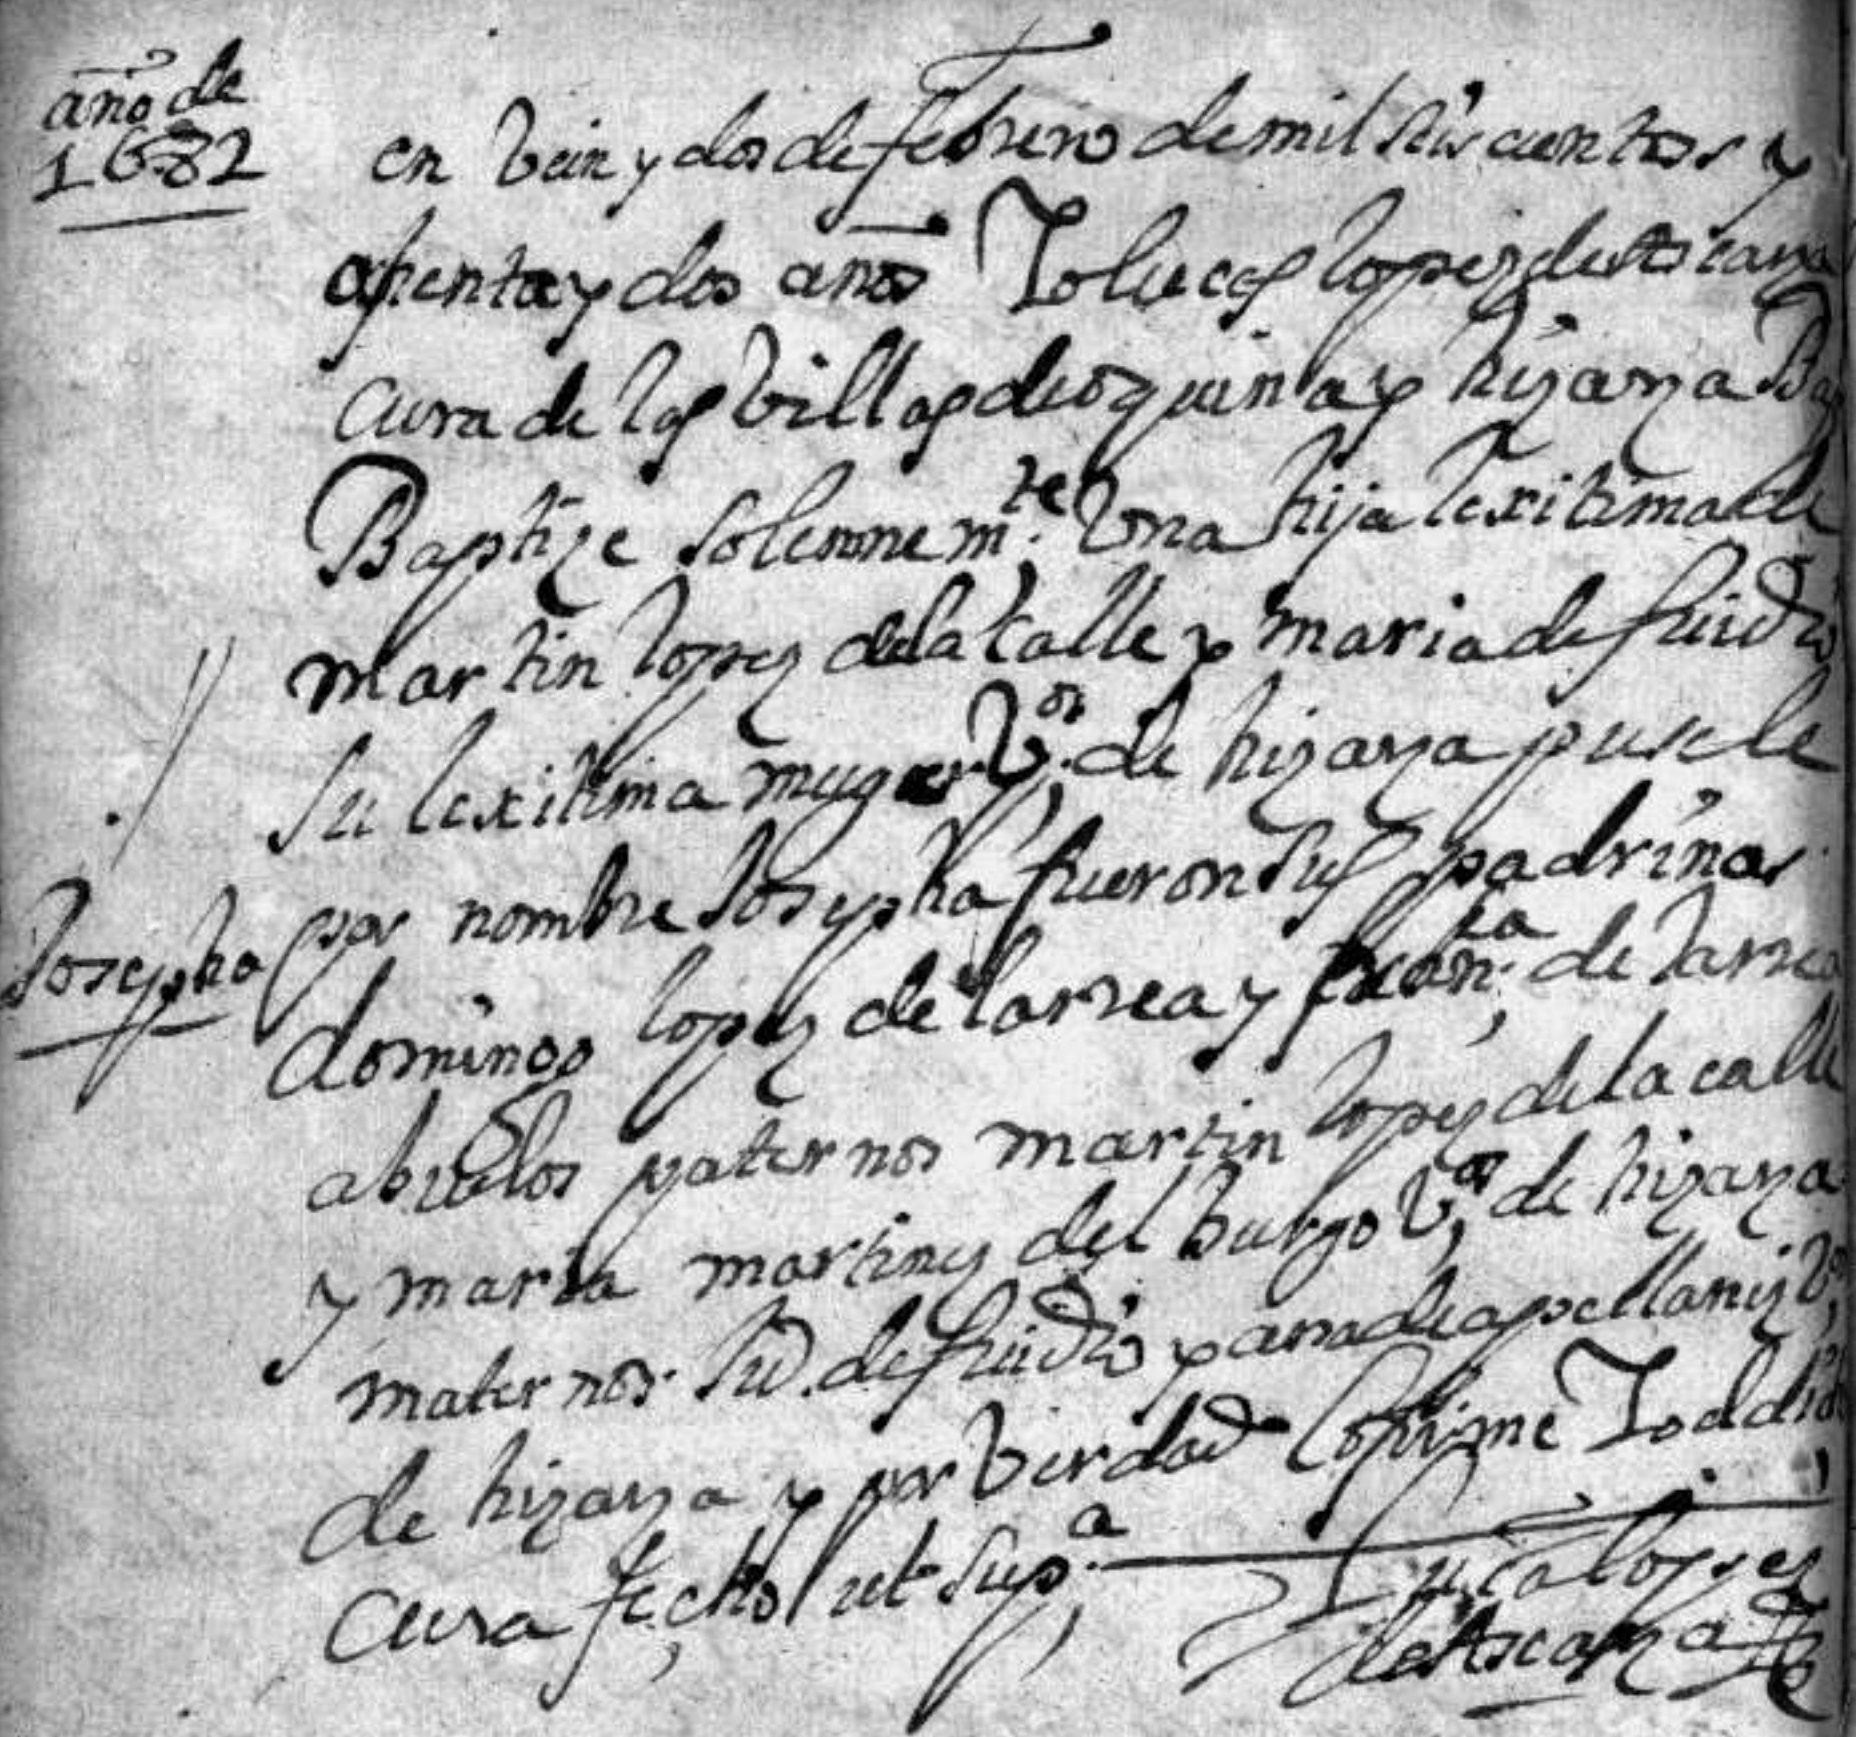 año de
1682
en vein y dos de febrero de mil seis cientos y
ochenta y dos años Yo lucas lopez de
cura de las villas de oquina y hijarza
Baptize solemnem.te Vna hija lexitima de
martin lopez de la calle y maria de
su lexitima muger V.os de hizarza pusele
por nombre Josepha fueron sus padrinos
Josepha
domingo lopez de larrea y fran.ca de larrea
abuelos paternos martin lopez de la calle
y maria martinez del burgo V.os de hizarza
maternos y ana de apellaniz V.os
de hizarza y por verdad lo firme Yo el dicho
cura fecho ut sup.a
Lucas lopez